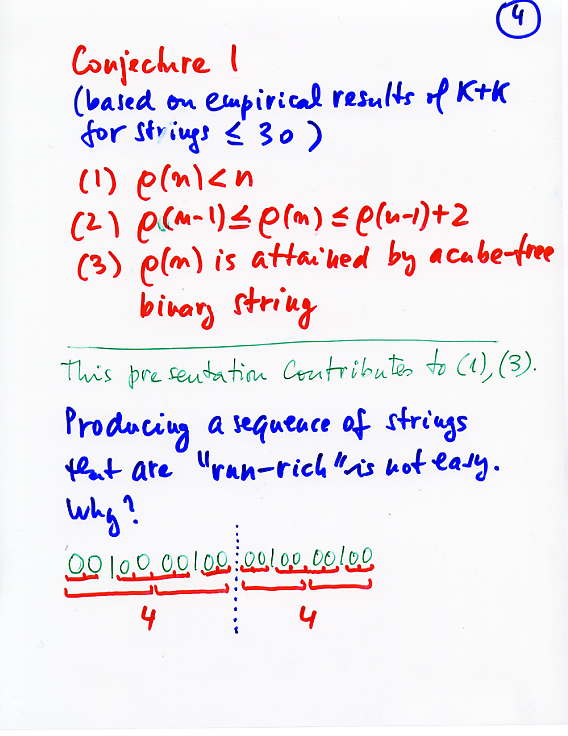 4
Conjecture 1
(based on empirical results of K+K
for strings ≤ 30)
(1) ρ(n)<n
(2) ρ(n-1)≤ρ(n)≤ρ(n-1)+2
(3) ρ(n) is attained by a cube-free
binary string
This presentation contributes to (1), (3).
Producing a sequence of strings
that are "run-rich" is not easy.
Why?
0010000100 0010000100
4 4